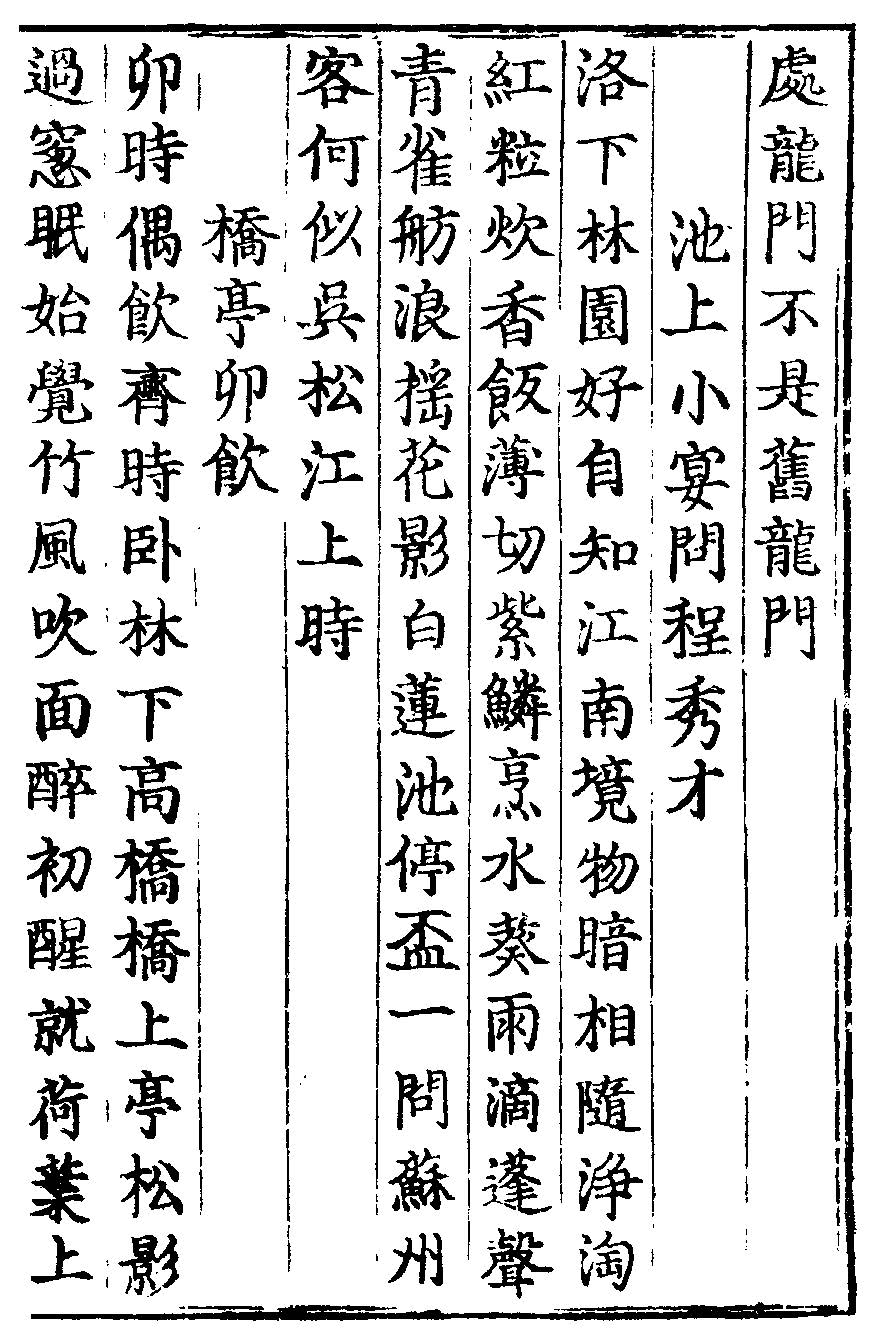 處龍門不是舊龍門
池上小宴問程秀才
洛下林園好自知江南境物暗相隨淨淘
紅粒炊香飯薄切紫鱗烹水葵雨滴蓬聲
青雀舫浪搖花影白蓮池停盃一問蘇州
客何似吳松江上時
橋亭卯飲
卯時偶飲齊時卧林下高橋橋上亭松影
過窻眠始覺竹風吹面醉初醒就荷葉上